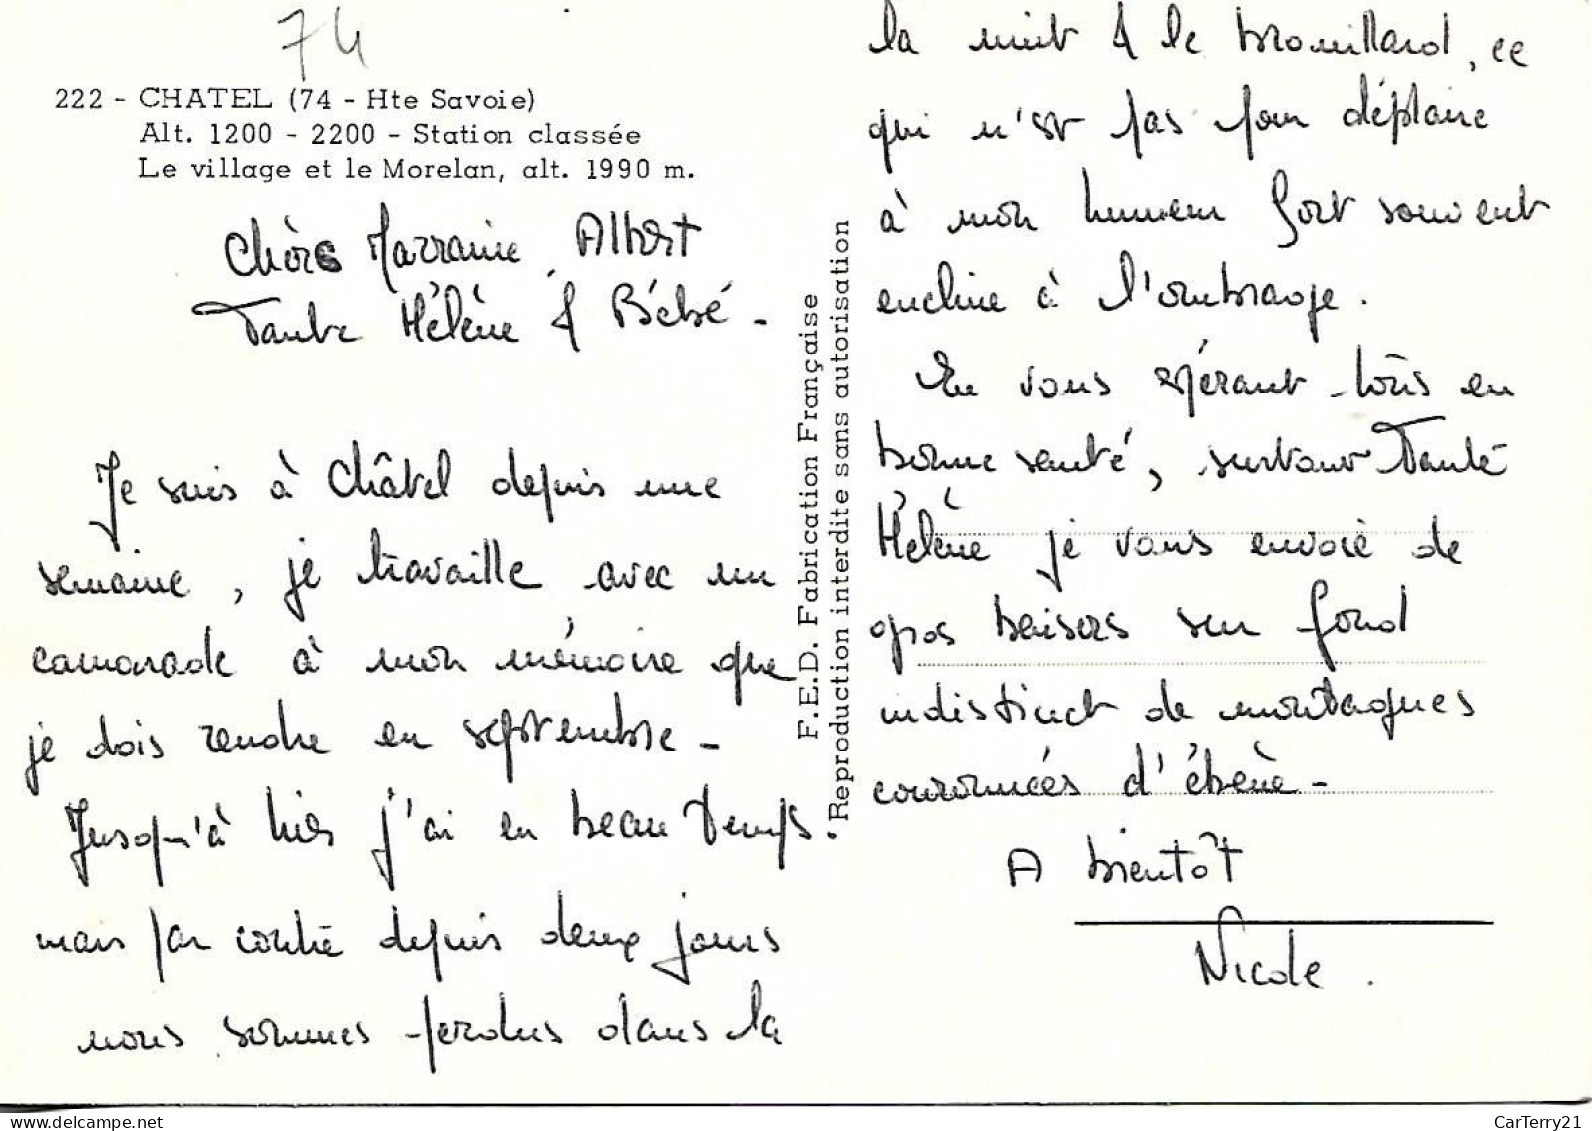 74
222 - CHATEL (74 - Hte Savoie)
Alt. 1200 - 2200 - Station classée
Le village et le Morelan, alt. 1990 m.
Chère Marraine, Albert
Tante Hélène & Bébé -
Je suis à Châtel depuis une
semaine, je travaille avec un
camarade à mon mémoire que
je dois rendre en septembre -
Jusqu'à hier j'ai eu beau temps.
mais par contre depuis deux jours
nous sommes perdus dans la
F.E.D. Fabrication Française
Reproduction interdite sans autorisation
la nuit & le brouillard, ce
qui n'est pas pour déplaire
à mon humeur fort souvent
encline à l'ombrage.
En vous espérant tous en
bonne santé, surtout Tante
Hélène je vous envoie de
gros baisers sur fond
indistinct de montagnes
couronnées d'ébène -
A bientôt
Nicole.
www.delcampe.net
CarTerry21